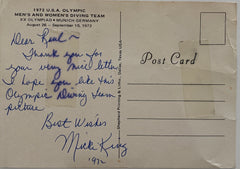 1972 U.S.A. OLYMPIC
MEN'S AND WOMEN'S DIVING TEAM
XX OLYMPIAD • MUNICH GERMANY
August 26 — September 10, 1972
Post Card
Dear
Thank you for
your very nice letter.
I hope you like this
Olympic Diving Team
picture
Best Wishes
Micki King
Dallas, Texas USA